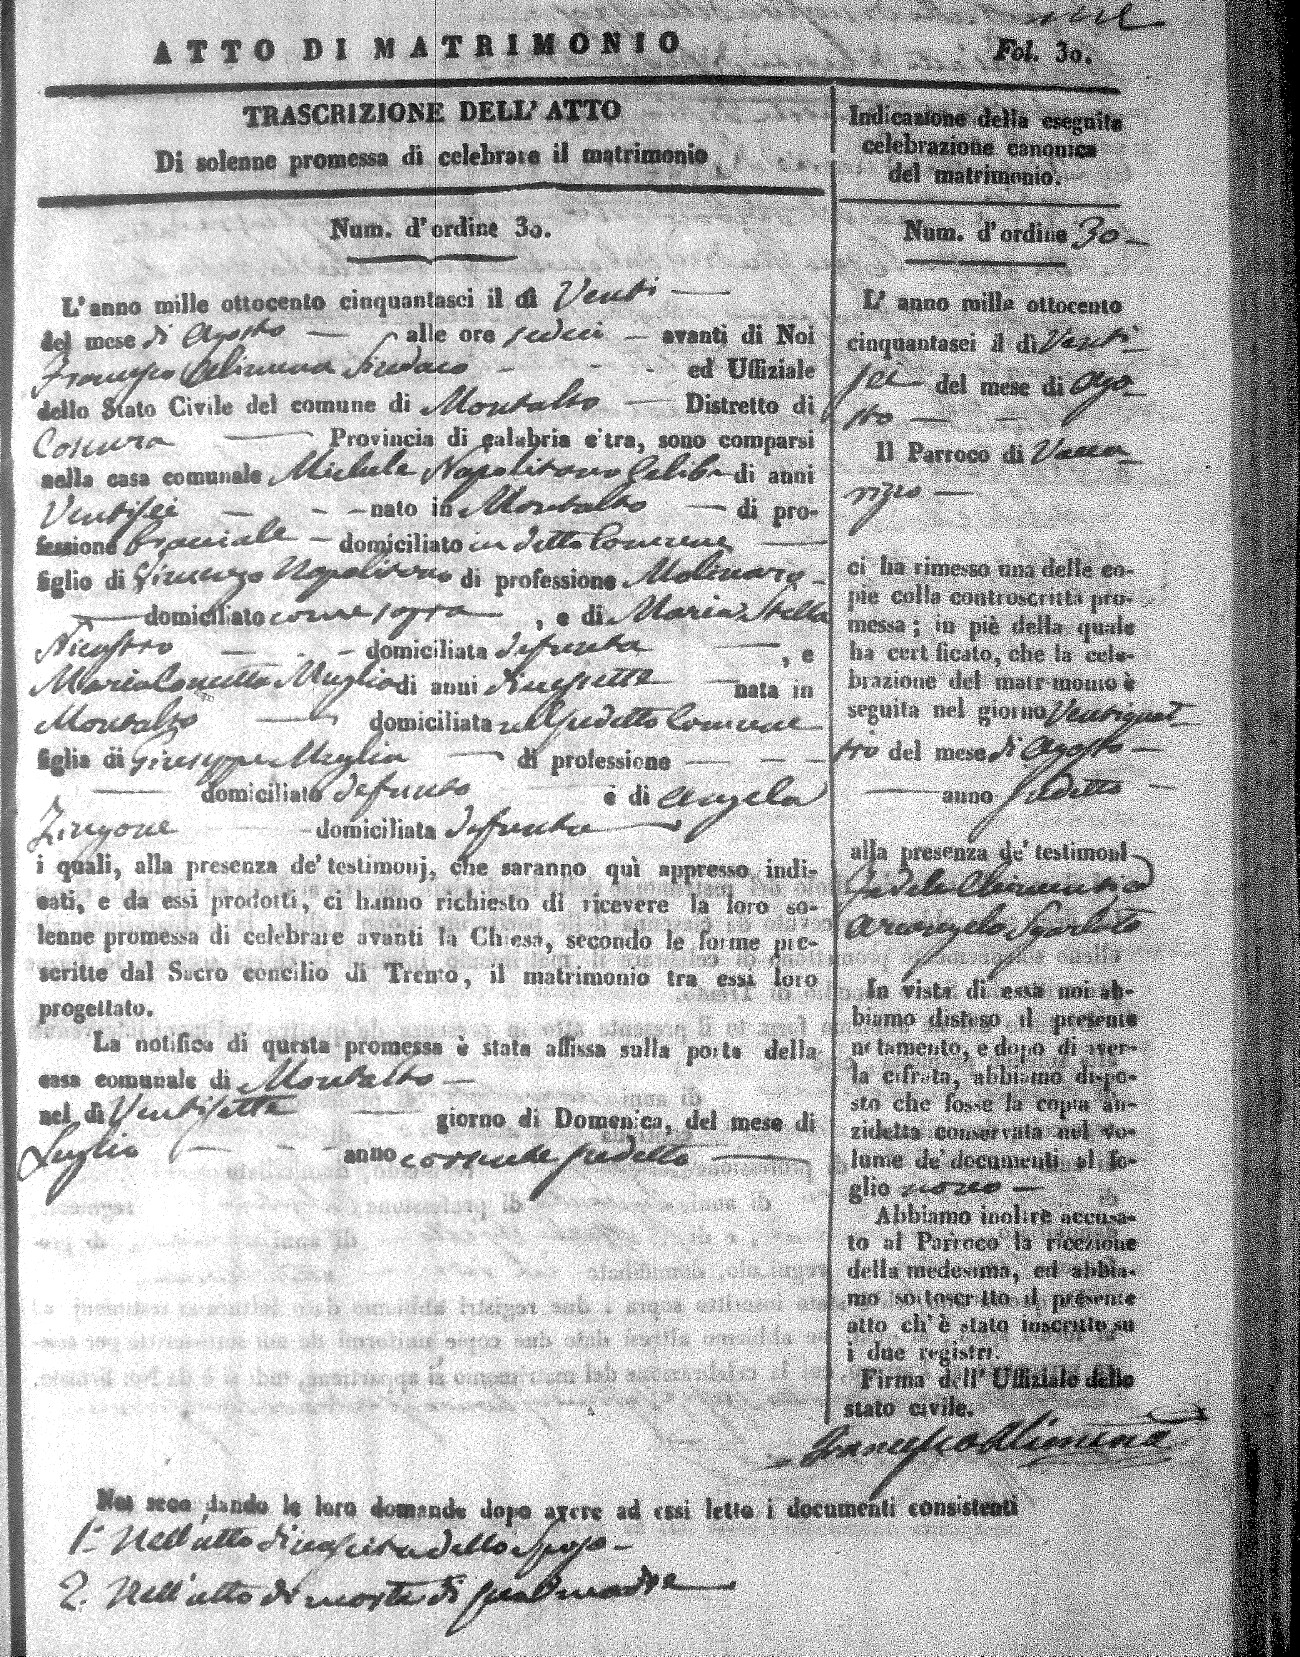 ATTO DI MATRIMONIO
Fol. 30.
TRASCRIZIONE DELL' ATTO
Di solenne promessa di celebrare il matrimonio
Num. d' ordine 30.
L' anno mille ottocento cinquantasei il dì Venti
del mese di Agosto alle ore sedici avanti di Noi
Francesco Alimena Sindaco ed Uffiziale
dello Stato Civile del comune di Montalto Distretto di
Cosenza Provincia di calabria c'tra, sono comparsi
nella casa comunale Michele Napolitano Celibe di anni
Ventisei nato in Montalto di pro-
fessione Bracciale domiciliato in detto Comune
figlio di Vincenzo Napolitano di professione Molinaro
domiciliato come sopra , e di Maria Stella
Nicastro domiciliata defunta , e
Maria Concetta Muglia di anni diecisette nata in
Montalto domiciliata nel predetto Comune
figlia di Giuseppe Muglia di professione
domiciliato defunto e di Angela
Zingone domiciliata defunta
i quali, alla presenza de' testimonj, che saranno quì appresso indi-
cati, e da essi prodotti, ci hanno richiesto di ricevere la loro so-
lenne promessa di celebrare avanti la Chiesa, secondo le forme pre-
scritte dal Sacro concilio di Trento, il matrimonio tra essi loro
progettato.
La notifica di questa promessa è stata affissa sulla porta della
casa comunale di Montalto
nel dì Ventisette giorno di Domenica, del mese di
Luglio anno corrente sudetto
Indicazione della eseguita
celebrazione canonica
del matrimonio.
Num. d' ordine 30
L' anno mille ottocento
cinquantasei il dì Venti
sei del mese di Ago
sto
Il Parroco di Vacca
rizzo
ci ha rimesso una delle co-
pie colla controscritta pro-
messa; in piè della quale
ha cert ficato, che la cele-
brazione del matr monio è
seguita nel giorno Ventiquat
tro del mese di Agosto
anno sudetto
alla presenza de' testimonl
Fedele
Arcangelo
In vista di essa noi ab-
biamo disteso il presente
notamento, e dopo di aver-
la cifrata, abbiamo dispo-
sto che fosse la copia an-
zidetta conservata nel vo-
lume de' documenti al fo-
glio nono
Abbiamo inoltre accusa-
to al Parroco la ricezione
della medesima, ed abbia-
mo sottoscritto il presente
atto ch' è stato inscritto su
i due registri.
Firma dell' Uffiziale dello
stato civile.
Francesco Alimena
Noi secondando le loro domande dopo avere ad essi letto i documenti consistenti
1º Nell'atto di nascita dello sposo
2. Nell'atto di morte di sua madre